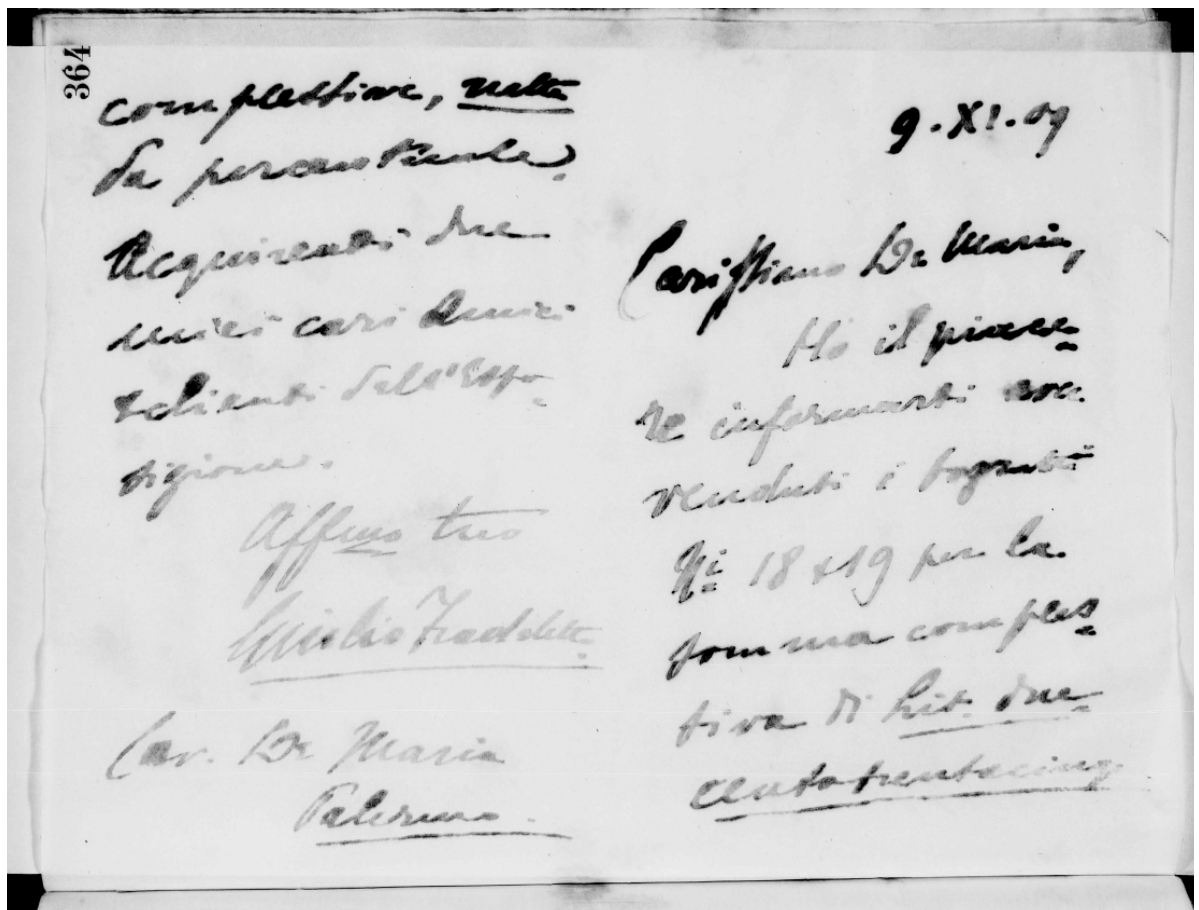 9. XI. 09
Carissimo De Maria,
Ho il piace=
re informarti aver
venduti i bozzetti
Ni 18 e 19 per la
somma comples=
siva di Lit. due=
centotrentacinq.
364
complessive, netta
da percentuale.
Acquirenti due
miei cari amici
e clienti dell'Espo=
sizione.
Affmo tuo
Cav. De Maria
Palermo.